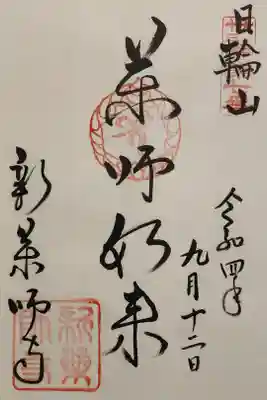 日輪山
令和四年
九月十二日
薬師如来
新薬師寺